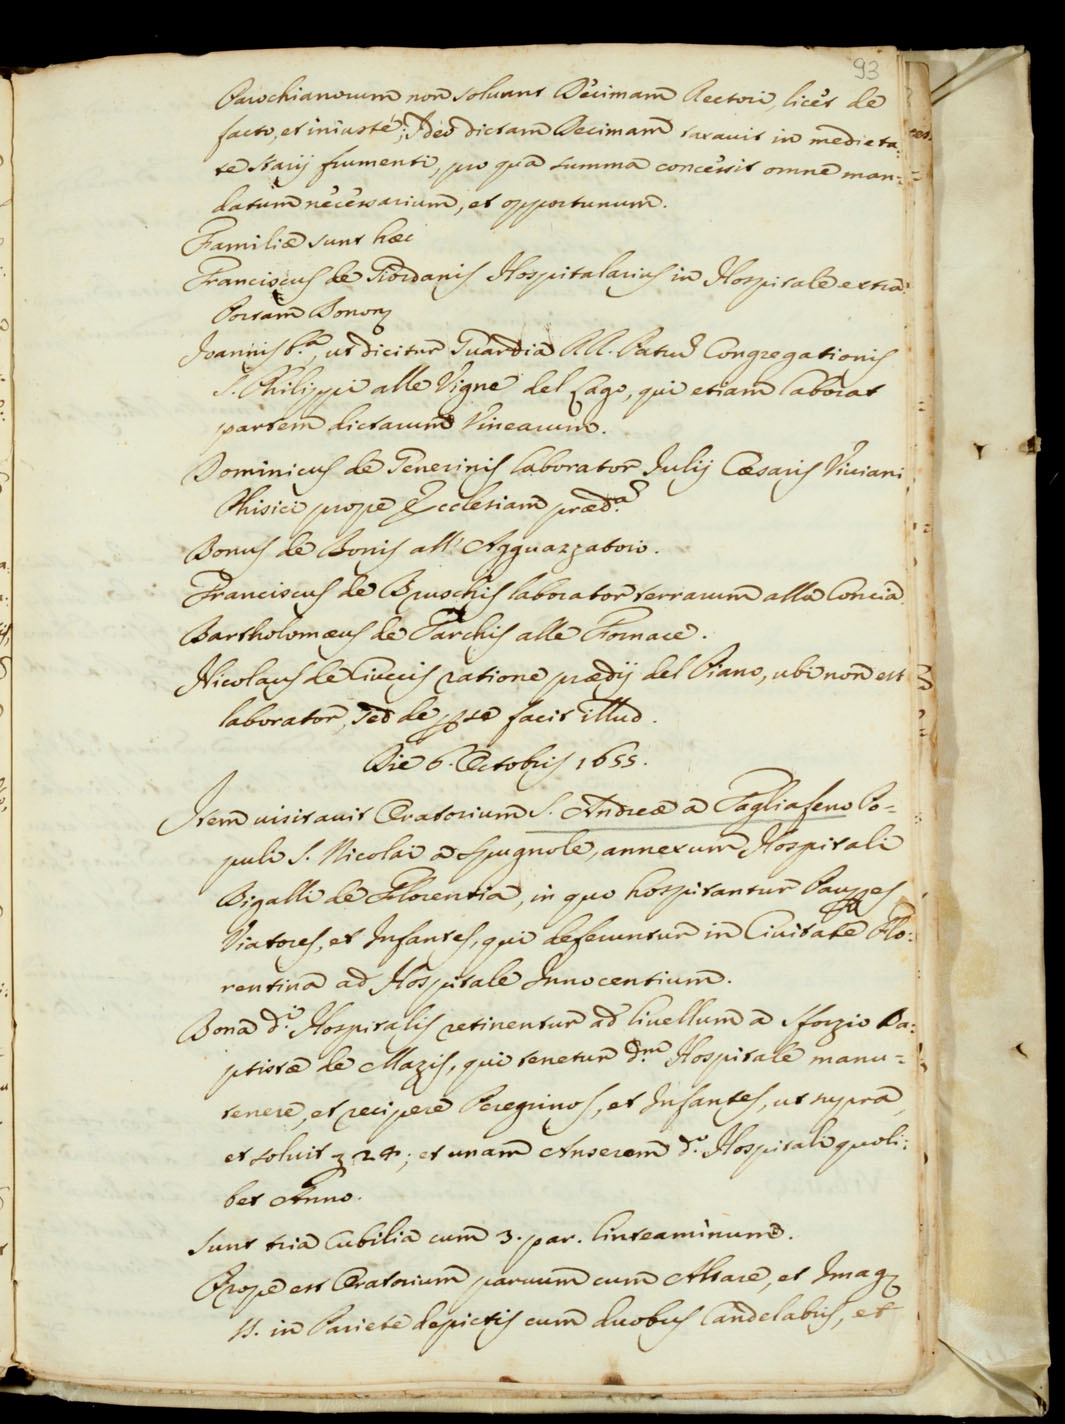 93
Parochianorum non soluunt Decimam Rectori, licet de
facto, et iniuste; Ideo dictam Decimam taxauit in medieta:
te Starij frumenti, pro qua summa concessit omne man-
datum necessarium, et opportunum.
Familiæ sunt hæc
Franciscus de Giordanis Hospitalarius in Hospitale extra
Portam Bonon
Joannis B.a, ut dicitur Guardia RR. Patrũ Congregationis
S. Philippi alle Vigne del Lago, qui etiam laborat
partem dictarum Vinearum.
Dominicus de Tenerinis laborator Julij Cæsaris Viuiani
Phisici prope Ecclesiam præd.a
Bonus de Bonis all' Agguazzatoio.
Franciscus de Bruschis laborator terrarum alla Concia
Bartholomæus de Tarchis alle Fornace.
Nicolaus de Ciuccis ratione prædij del Piano, ubi non est
laborator, sed de per se facit illud.
Die 6. Octobris 1655.
Item uisitauit Oratorium S. Andreæ a Tagliafeno Po-
puli S. Nicolai a Spugnole, annexum Hospitali
Bigalli de Florentia, in quo hospitantur Pauperes
Viatores, et Infantes, qui deferuntur in Ciuitate Flo:
rentina ad Hospitale Innocentium.
Bona d.i Hospitalis retinentur ad liuellum a Sforzio Ba:
ptistæ de Mazis, qui tenetur d.m Hospitale manu-
tenere, et recipere Peregrinos, et Infantes, ut supra,
et soluit 24; et unam Anserem d.o Hospitali quoli:
bet Anno.
Sunt tria Cubilia cum 3. par. linteaminum.
Prope est Oratorium paruum cum Altare, et Imag
SS. in Pariete depictis cum duobus Candelabris, et